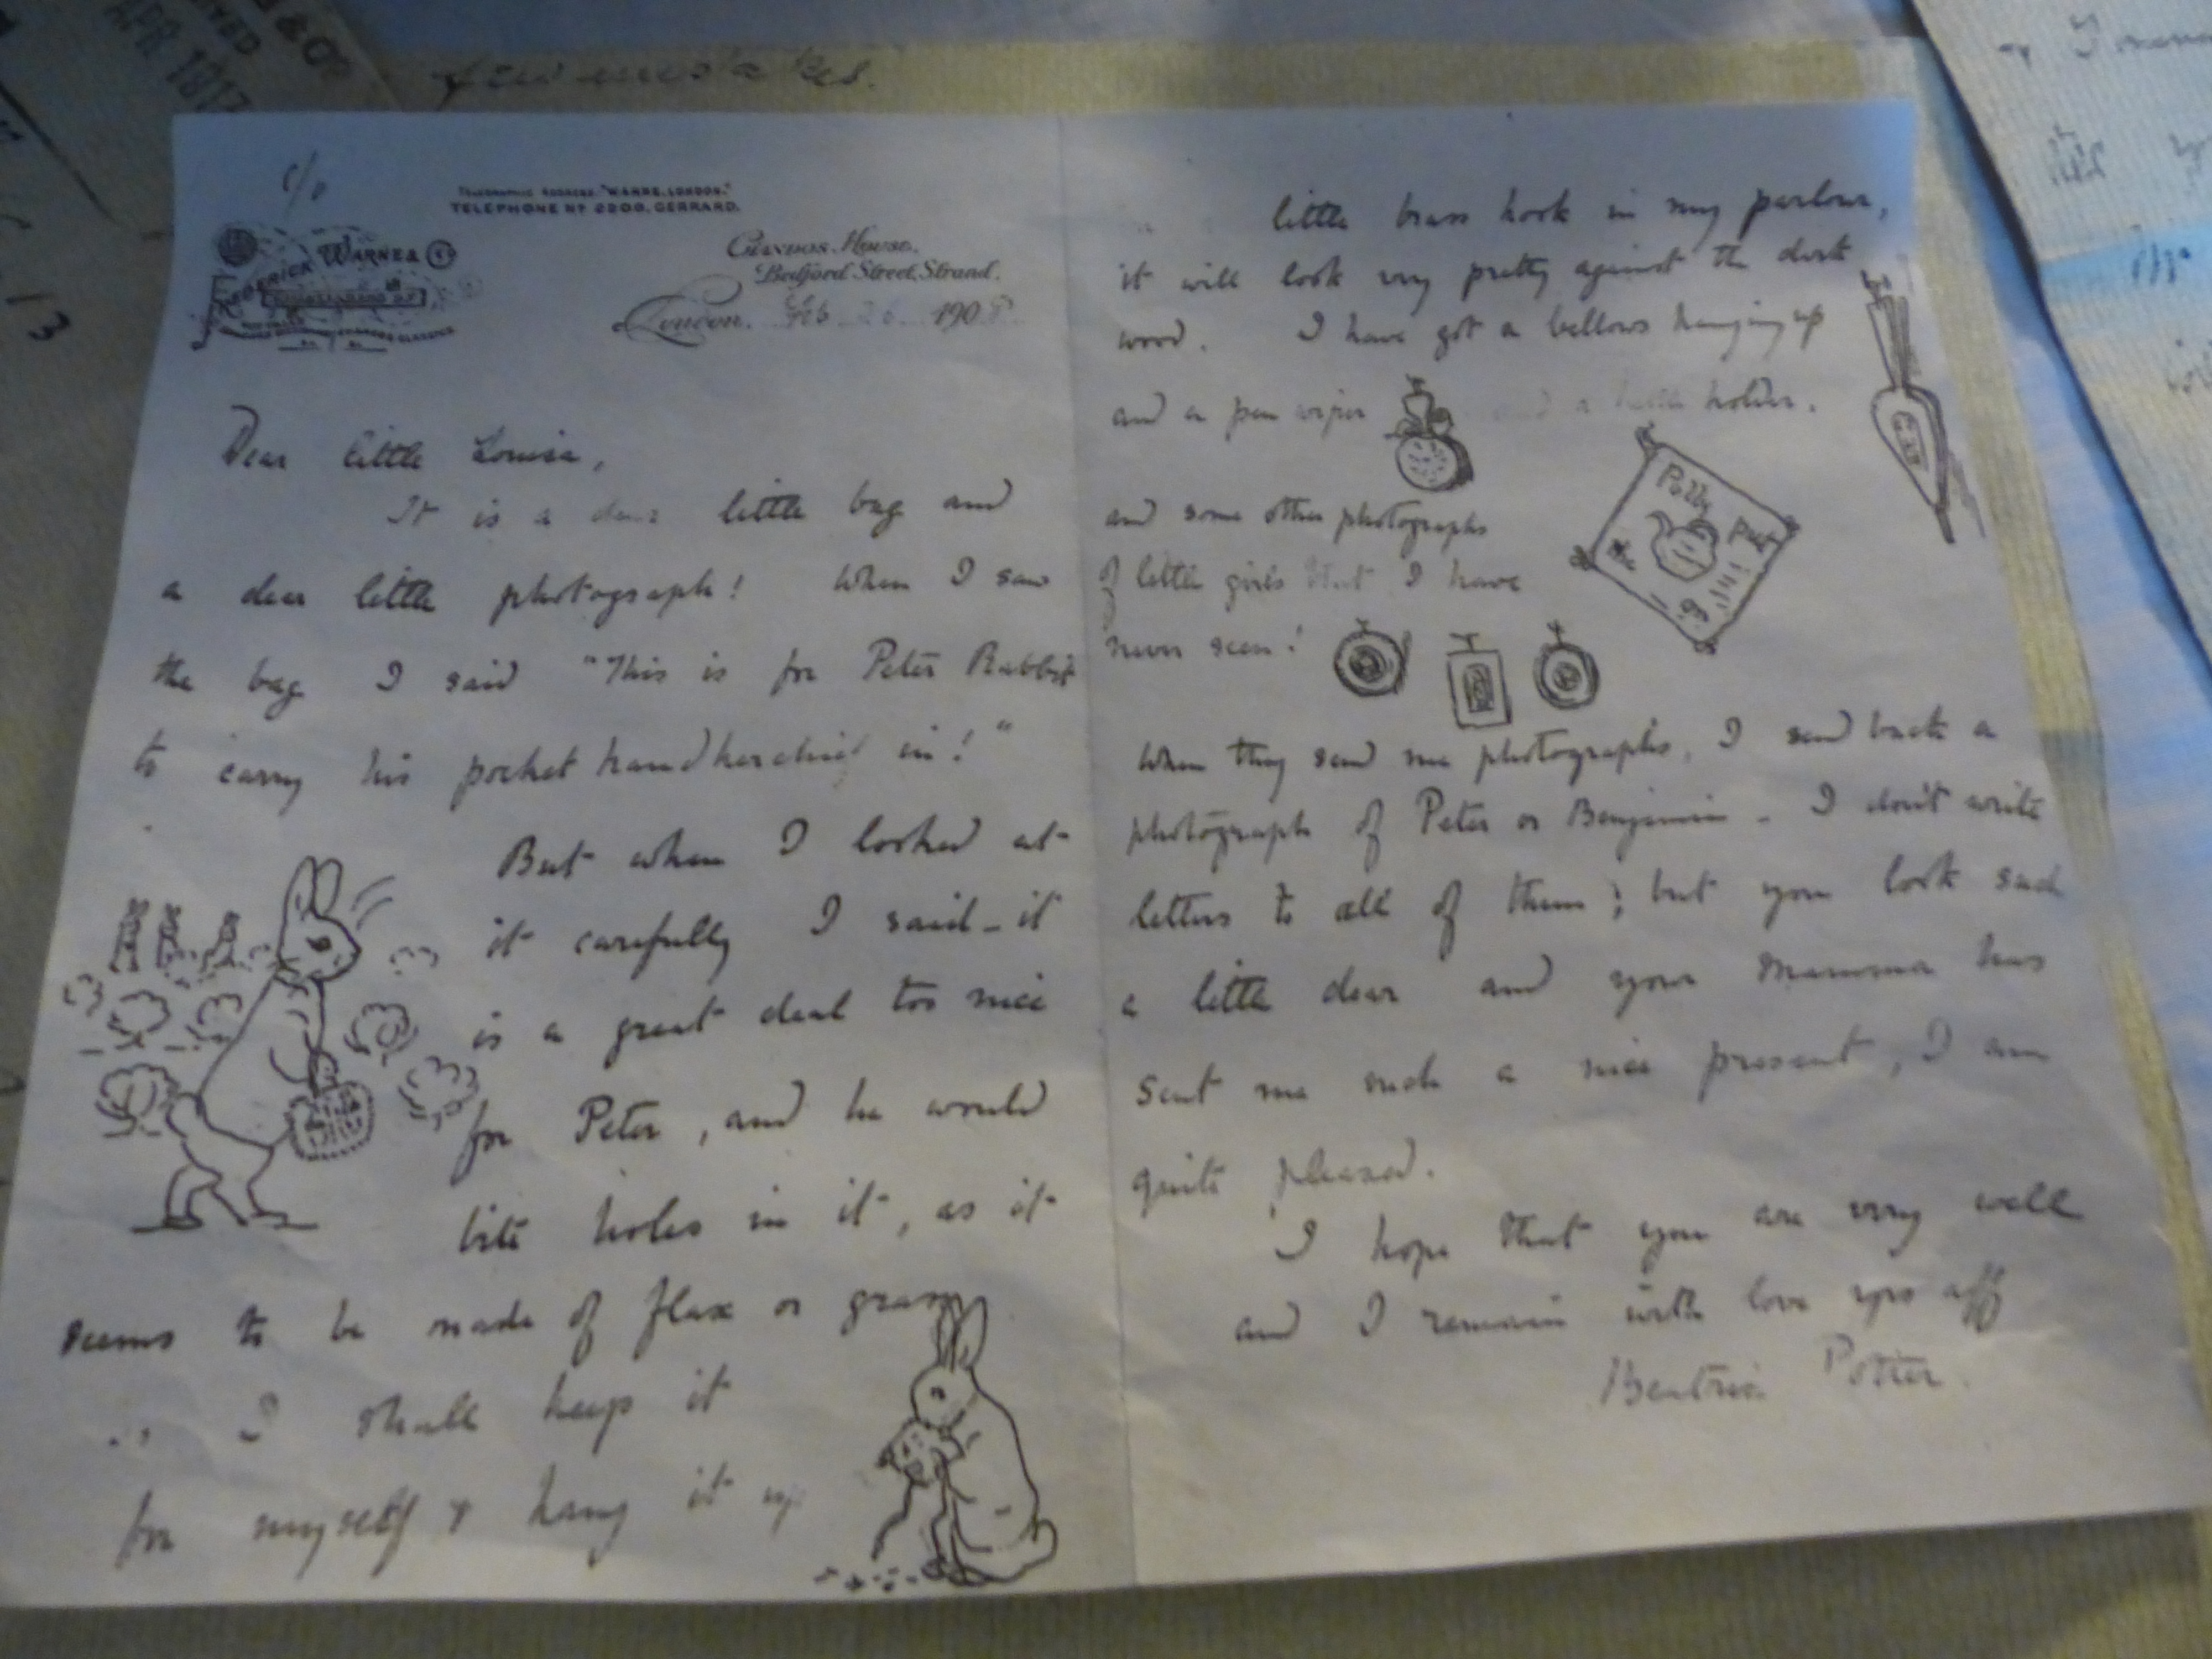 few mistakes.
APR 1913
c/o
TELEGRAPHIC ADDRESS, "WARNE, LONDON."
TELEPHONE Nº 2200, GERRARD.
FREDERICK WARNE & Co
Chandos House,
Bedford Street, Strand.
London. Feb 26 190
Dear little Louisa,
It is a dear little bag and
a dear little photograph! When I saw
the bag I said "This is for Peter Rabbit
to carry his pocket handkerchief in!"
But when I looked at
it carefully I said - it
is a great deal too nice
for Peter, and he would
bite holes in it, as it
seems to be made of flax or grass
I shall keep it
for myself & hang it up
little brass hook in my parlour,
it will look very pretty against the dark
wood. I have got a bellows hanging up
and a pen wiper and a kettle holder.
Polly
Put
the
and some other photographs
of little girls that I have
never seen!
When they send me photographs, I send back a
photograph of Peter or Benjamin - I don't write
letters to all of them; but you look such
a little dear and your Mamma has
sent me such a nice present, I am
quite pleased.
I hope that you are very well
and I remain with love yrs aff
Beatrix Potter